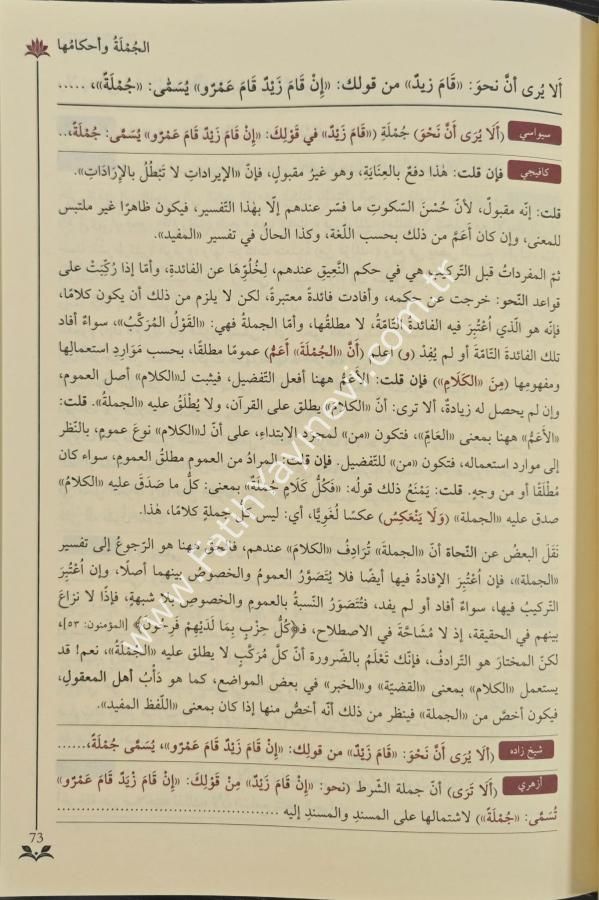 الجُمْلَةُ وأحكامُها
أَلا يُرى أنَّ نحوَ: «قَامَ زيدٌ» من قولك: «إِنْ قَامَ زَيْدٌ قَامَ عَمْرٌو» يُسَمّٰى: «جُمْلَةً»، .....
سيواسي (أَلَا يُرَى أَنَّ نَحْوَ) جُمْلَةِ («قَامَ زَيْدٌ» في قَوْلِكَ: «إِنْ قَامَ زَيْدٌ قَامَ عَمْرٌو» يُسَمّٰى: جُمْلَةً،..
كافيجي فإن قلت: هٰذا دفعٌ بالعِنايَةِ، وهو غيرُ مقبولٍ، فإنّ «الإيراداتِ لا تَبْطُلُ بالإرَادَاتِ».
قلت: إنّه مقبولٌ، لأنّ حُسْنَ السّكوتِ ما فسّر عندهم إلّا بهٰذا التّفسيرِ، فيكون ظاهرًا غير ملتبس
للمعنى، وإن كان أَعَمَّ من ذلك بحسب اللّغة، وكذا الحال في تفسير «المفيد».
ثمّ المفرداتُ قبل التّركيب هي في حكم النَّعِيقِ عندهم، لِخُلُوِّها عن الفائدةِ، وأمّا إذا رُكِّبَتْ على
قواعد النّحو: خرجت عن حكمه، وأفادت فائدةً معتبرةً، لكن لا يلزم من ذلك أن يكون كلامًا،
فإنّه هو الّذي اُعْتُبِرَ فيه الفائدةُ التّامّةُ، لا مطلقُها، وأمّا الجملة فهي: «القَوْلُ المُرَكَّبُ»، سواءٌ أفاد
تلك الفائدةَ التّامّةَ أو لم يُفِدْ (و) اعلم (أَنَّ «الجُمْلَةَ» أَعَمُّ) عمومًا مطلقًا، بحسب مَوَارِدِ استعمالِها
ومفهومِها (مِنَ «الكَلَامِ») فإن قلت: الأَعَمُّ ههنا أفعل التّفضيل، فيثبت لـ«الكلام» أصل العموم،
وإن لم يحصل له زيادةٌ، ألا ترى: أنّ «الكلامَ» يطلق على القرآن، ولا يُطْلَقُ عليه «الجملةُ». قلت:
«الأَعَمُّ» ههنا بمعنى «العَامِّ»، فتكون «من» لمجرّدِ الابتداءِ، على أنّ لـ«الكلام» نوعَ عمومٍ، بالنّظر
إلى موارد استعماله، فتكون «من» للتّفضيل. فإن قلت: المرادُ من العموم مطلقُ العمومِ، سواء كان
مُطْلَقًا أو من وجهٍ. قلت: يَمْنَعُ ذلك قولُه: «فَكُلُّ كَلَامٍ جُمْلَةٌ» بمعنى: كلُّ ما صَدَقَ عليه «الكلامُ»
صدق عليه «الجملة» (وَلَا يَنْعَكِسُ) عكسًا لُغَوِيًّا، أي: ليس كلُّ جملةٍ كلامًا، هٰذا.
نَقَلَ البعضُ عن النّحاة أنّ «الجملةَ» تُرَادِفُ «الكلامَ» عندهم، فالحقّ ههنا هو الرّجوعُ إلى تفسير
«الجملة»، فإن اُعْتُبِرَ الإفادةُ فيها أيضًا فلا يُتَصَوَّرُ العمومُ والخصوصُ بينهما أصلًا، وإن اُعْتُبِرَ
التّركيبُ فيها، سواءٌ أفاد أو لم يفد، فتُتَصَوَّرُ النّسبةُ بالعمومِ والخصوصِ بلا شبهةٍ، فإذًا لا نزاعَ
بينهم في الحقيقة، إذ لا مُشَاحَّةَ في الاصطلاح، فـ﴿كُلُّ حِزْبٍ بِمَا لَدَيْهِمْ فَرِحُونَ﴾ [المؤمنون: ٥٣]،
لكنّ المختارَ هو التّرادفُ، فإنّك تَعْلَمُ بالضّرورة أنّ كلَّ مُرَكَّبٍ لا يطلق عليه «الجُمْلَةُ»، نعم! قد
يستعمل «الكلام» بمعنى «القضيّة» و«الخبر» في بعض المواضع، كما هو دَأْبُ أهل المعقولِ،
فيكون أخصَّ من «الجملة» فينظر من ذلك أنّه أخصُّ منها إذا كان بمعنى «اللّفظ المفيد».
شيخ زاده (أَلَا يُرَى أَنَّ نَحْوَ: «قَامَ زَيْدٌ» من قولك: «إِنْ قَامَ زَيْدٌ قَامَ عَمْرٌو»، يُسَمّٰى جُمْلَةً،......
أزهري (أَلَا تَرَى) أنّ جملة الشّرط (نحو: «إِنْ قَامَ زَيْدٌ» مِنْ قَوْلِكَ: «إِنْ قَامَ زَيْدٌ قَامَ عَمْرٌو»
تُسَمّٰى: «جُمْلَةً») لاشتمالها على المسندِ والمسندِ إليه ..........................
73
www.fatihyayinevi.com.tr